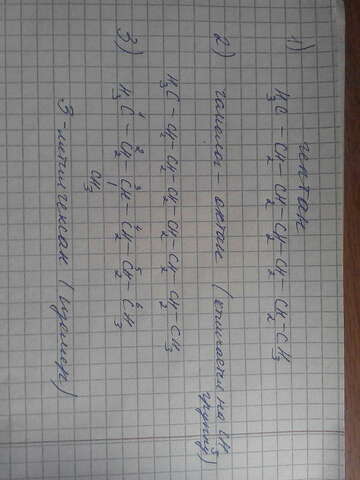 1) гептан
H₃C – CH₂ – CH₂ – CH₂ – CH₂ – CH₂ – CH₃
2) гомолог – октан (отличается на CH₃ группу)
H₃C – CH₂ – CH₂ – CH₂ – CH₂ – CH₂ – CH₂ – CH₃
3) H₃C¹ – CH₂² – CH³ – CH₂⁴ – CH₂⁵ – CH₃⁶
CH₃
3-метилгексан (изомер)